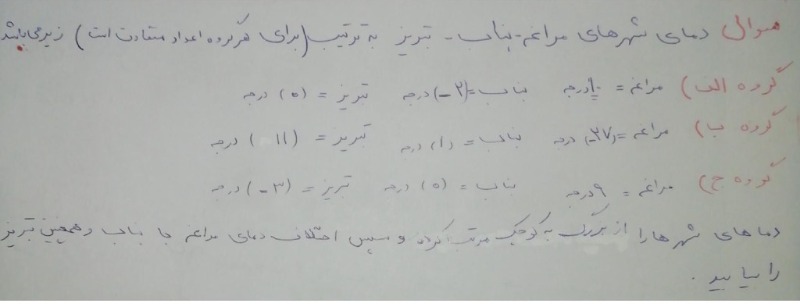 سوال دمای شهرهای مراغه - بناب - تبریز به ترتیب (برای هر گروه اعداد متفاوت است) زیر می باشد
گروه الف) مراغه = درجه بناب = (-2) درجه تبریز = (5) درجه
گروه ب) مراغه = (-37) درجه بناب = (1) درجه تبریز = (11) درجه
گروه ج) مراغه = 9 درجه بناب = (5) درجه تبریز = (-3) درجه
دماهای شهرها را از بزرگ به کوچک مرتب کرده و سپس اختلاف دمای مراغه با بناب و همچنین تبریز
را بیابید.